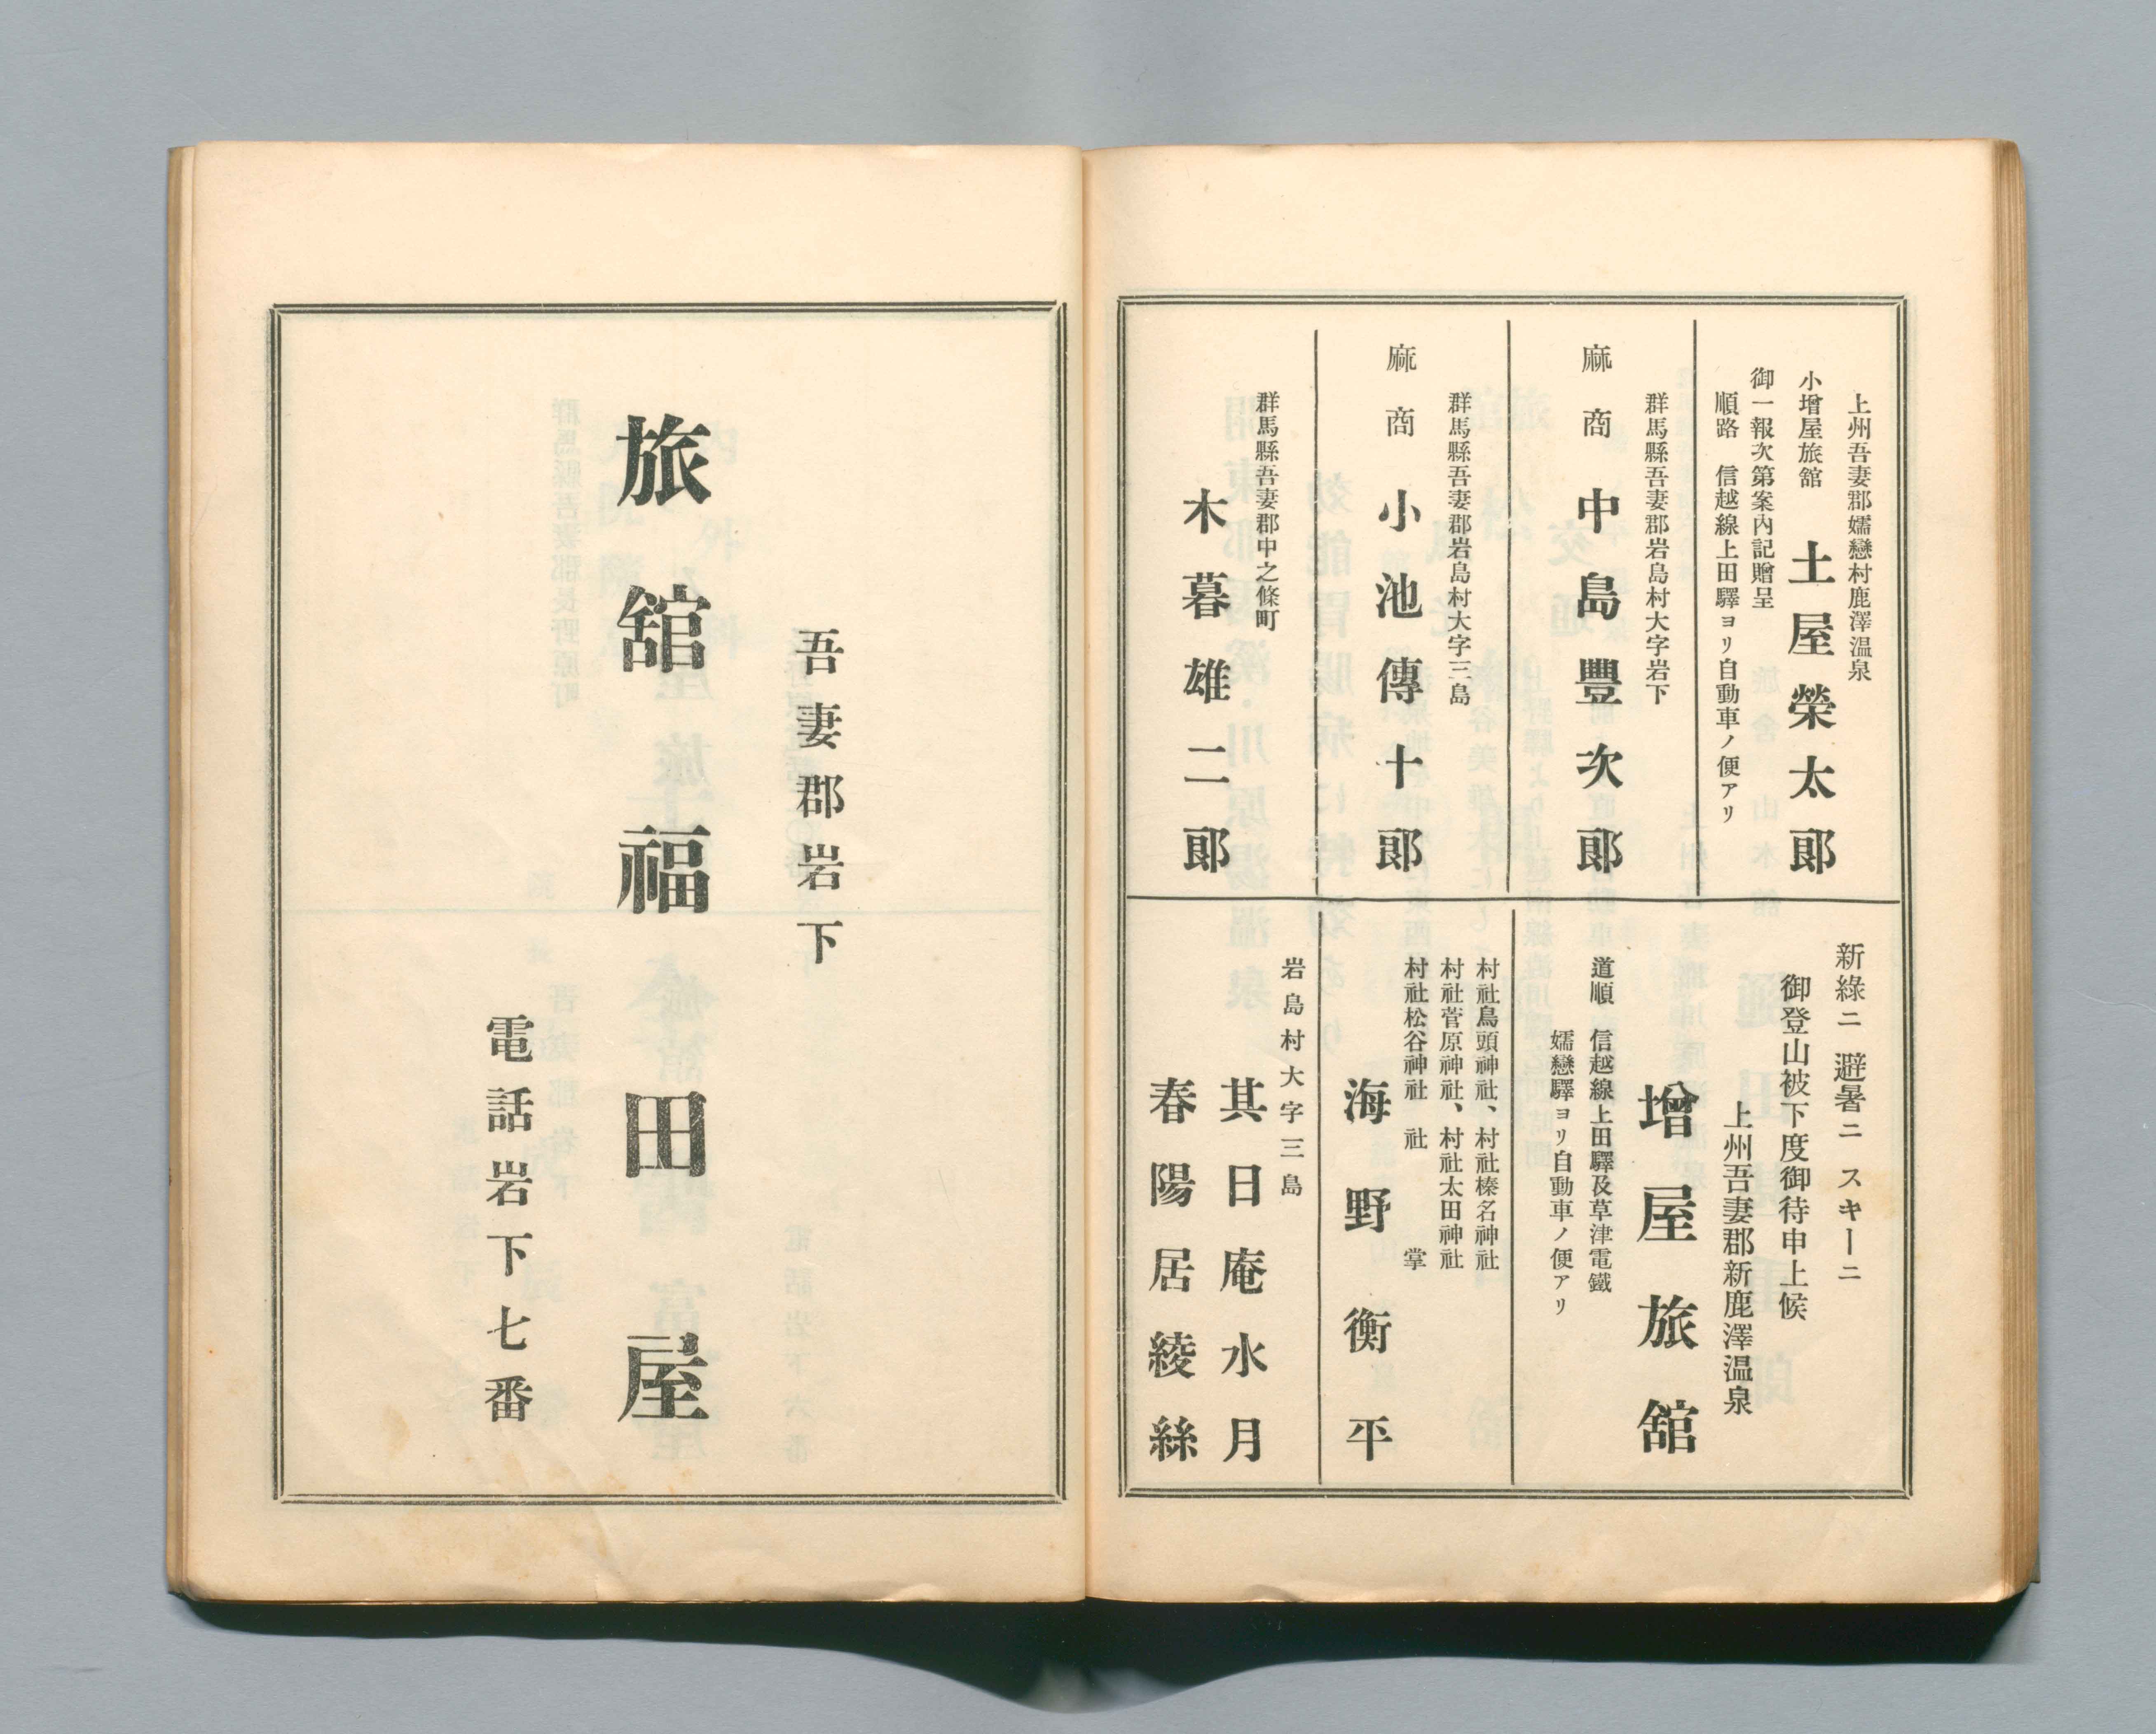 上州吾妻郡嬬戀村鹿澤温泉
小增屋旅舘 土屋榮太郎
御一報次第案內記贈呈
順路 信越線上田驛ヨリ自動車ノ便アリ
群馬縣吾妻郡岩島村大字岩下
麻商 中島豐次郎
群馬縣吾妻郡岩島村大字三島
麻商 小池傳十郎
群馬縣吾妻郡中之條町
木暮雄二郎
新綠ニ 避暑ニ スキーニ
御登山被下度御待申上候
上州吾妻郡新鹿澤温泉
增屋旅舘
道順 信越線上田驛及草津電鐵
嬬戀驛ヨリ自動車ノ便アリ
村社鳥頭神社、村社榛名神社
村社菅原神社、村社太田神社
村社松谷神社 社掌
海野衡平
岩島村大字三島
其日庵水月
春陽居綾絲
吾妻郡岩下
旅舘福田屋
電話岩下七番